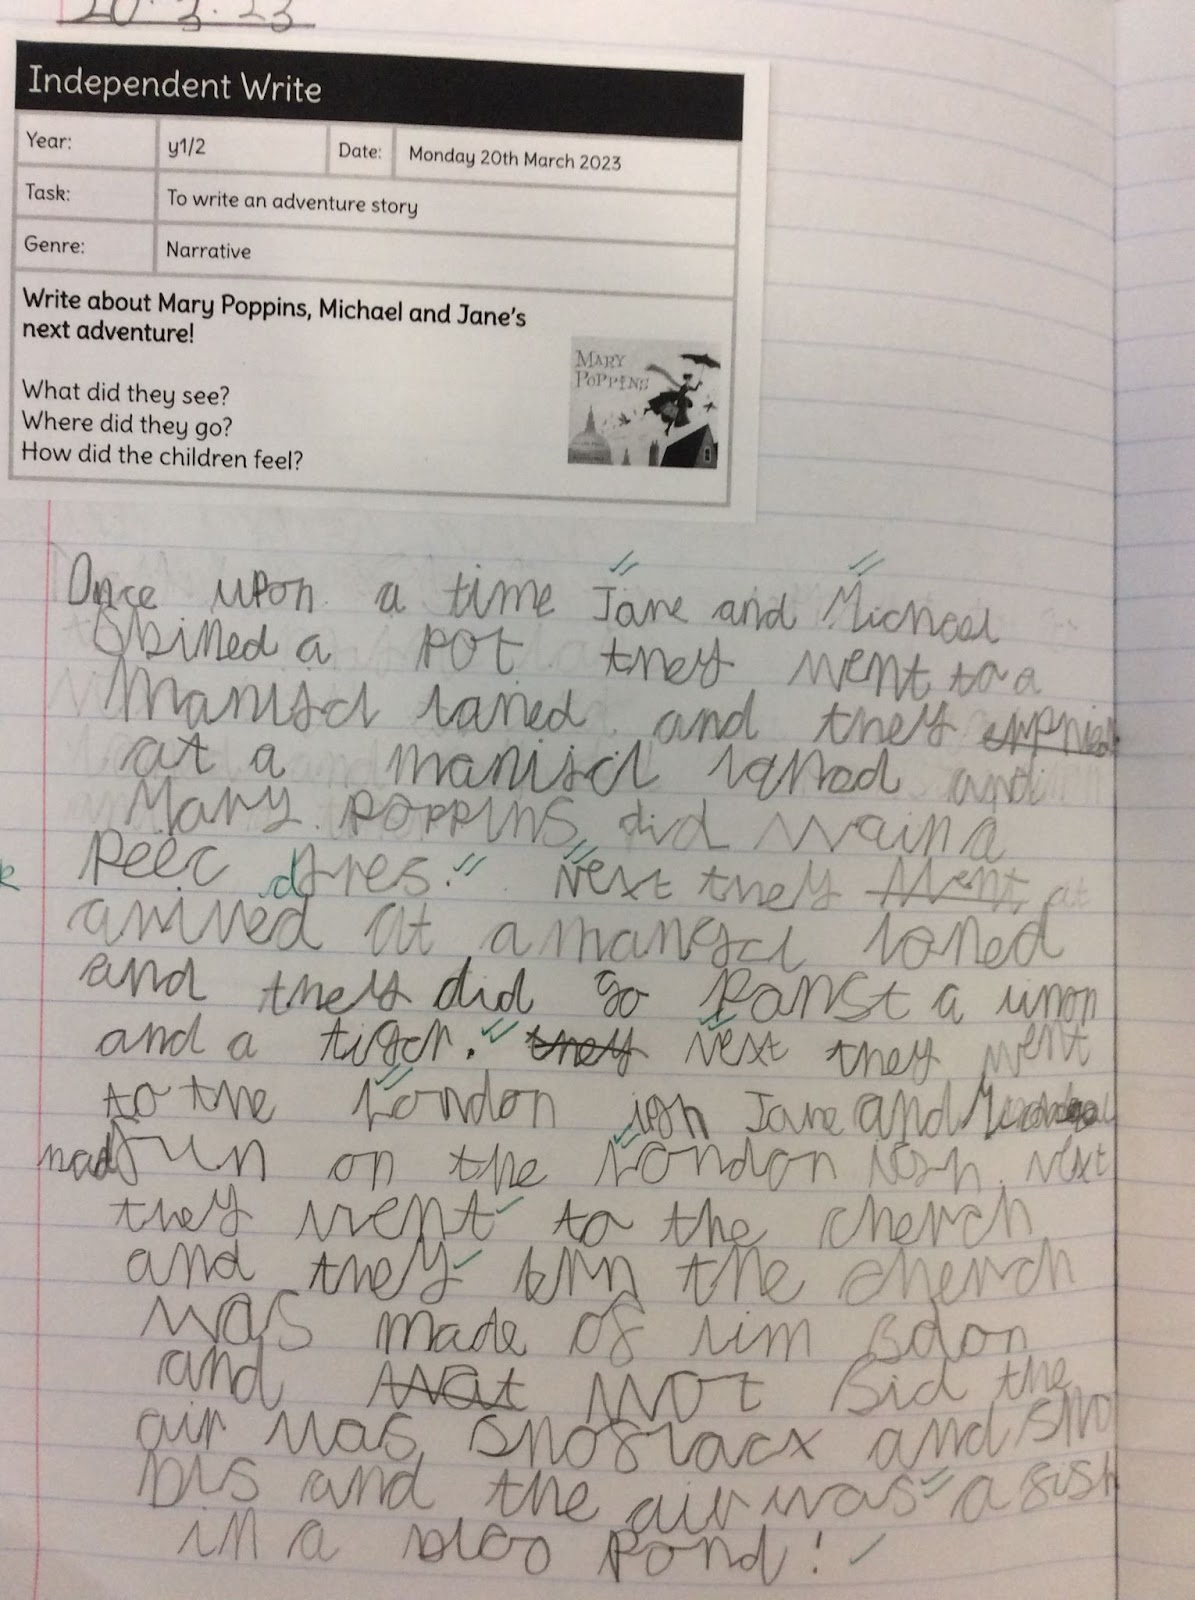 20.3.23
Independent Write
Year: y1/2 Date: Monday 20th March 2023
Task: To write an adventure story
Genre: Narrative
Write about Mary Poppins, Michael and Jane's
next adventure!
What did they see?
Where did they go?
How did the children feel?
MARY
POPPINS
Once upon a time Jane and Michael
a pot they went to a
laned and they
at a and
Mary Poppins did a
Peec dres. Next they
arrived at a loned
and they did go Panst a
and a tiger. they Next they went
to the London Jane and
mad fun on the London Next
they went to the cherch
and they the cherch
was made of rim
and wat not sid the
air was snoflacx and sno
and the air was a fish
in a bloo pond!